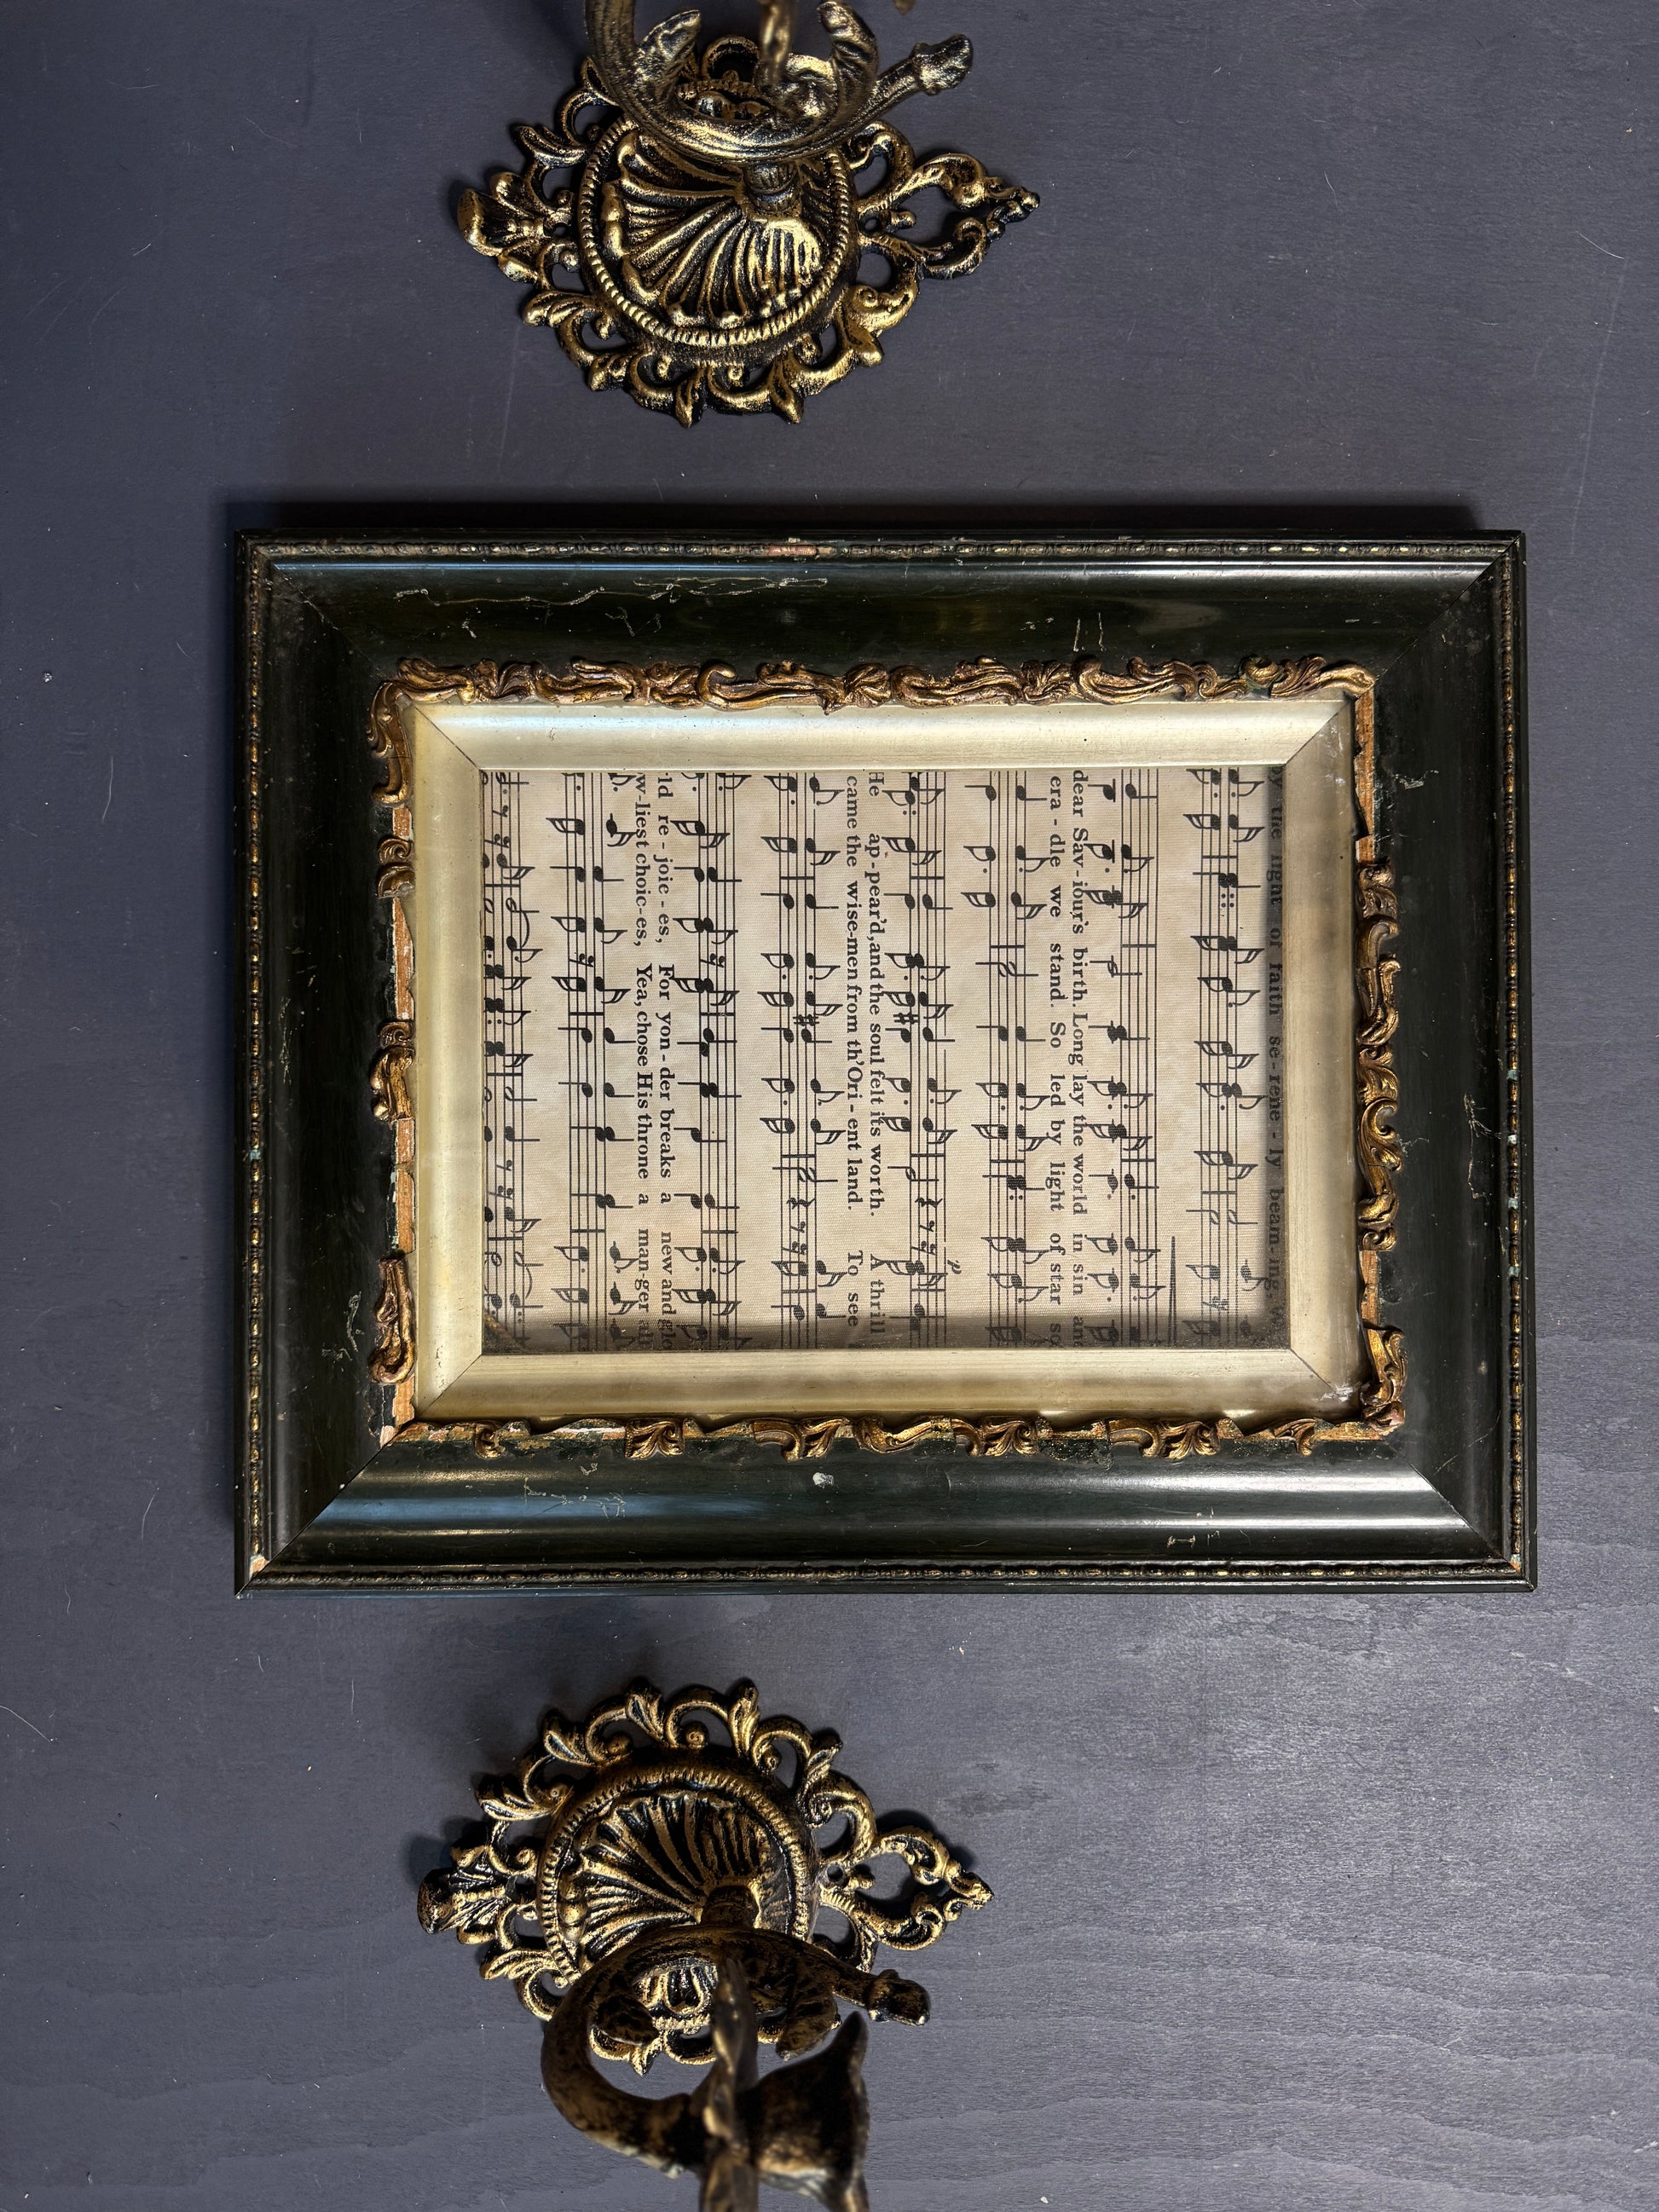 by the light of faith se-rene-ly beam-ing, W
dear Sav-iour's birth. Long lay the world in sin and
cra-dle we stand. So led by light of star so
p
He ap-pear'd, and the soul felt its worth. A thrill
came the wise-men from th' Ori-ent land. To see
'ld re-joic-es, For yon-der breaks a new and glo
w-liest choic-es, Yea, chose His throne a man-ger